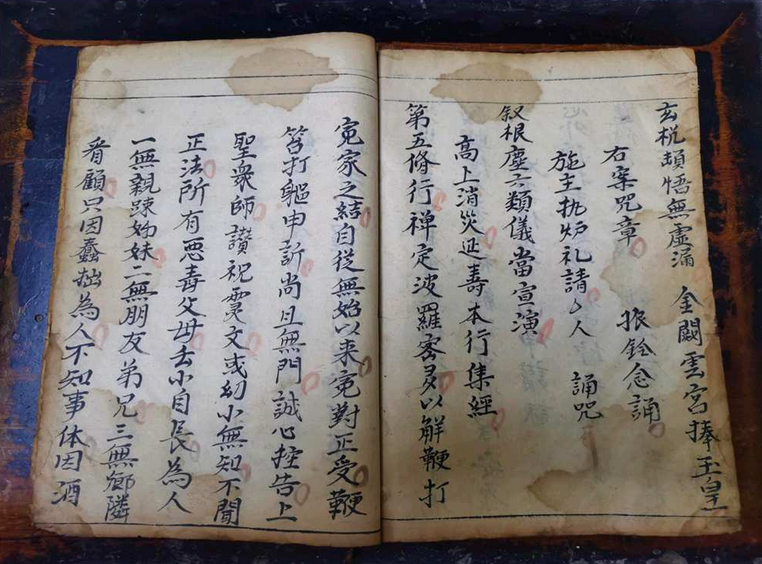 玄桄頡悟無虛漏 金闕雲宮捧玉皇
右案咒章 振鈴念誦
施主执炉礼請㇒人 誦咒
叙根塵六類儀當宣演
高上消災延壽本行集經
第五條行禅定波羅密多以觧鞭打
寃家之結自從無始以来寃對正受鞭
笞打軀申訴尚且無門誠心控告上
聖衆師讃祝霊文或幻小無知不聞
正法所有悪毒父母去小自長為人
一無親踈姊妹二無朋友弟兄三無鄉隣
看顧只因蠢拙為人不知事体因酒